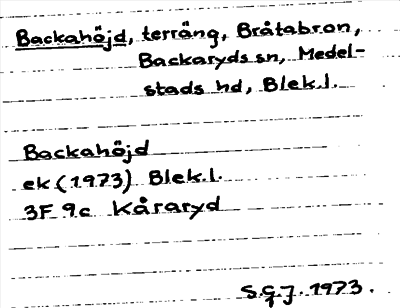 Backahöjd, terräng, Bråtabron,
Backaryds sn, Medel-
stads hd, Blek.l.
Backahöjd
ek (1973) Blek.l.
3F 9c Kåraryd
S.G.J. 1973.